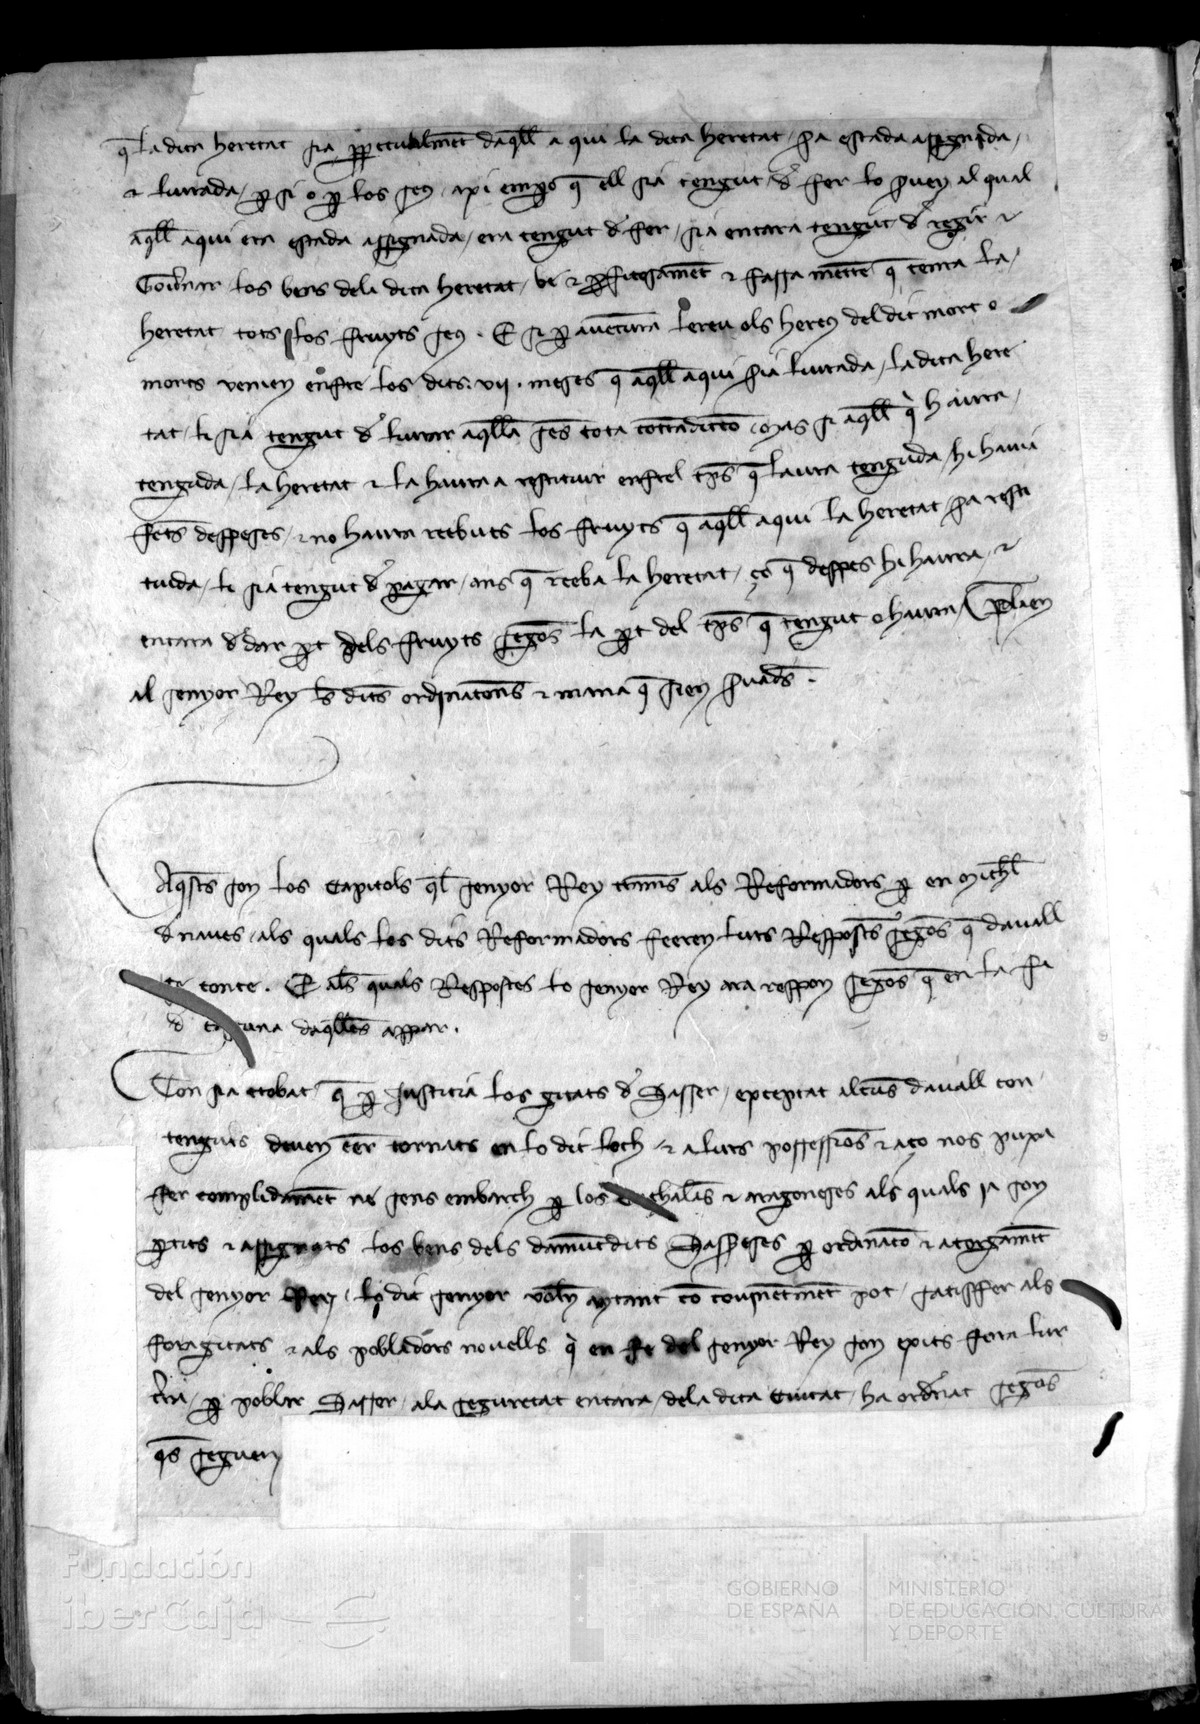 q̄ la dita heretat sia ꝑpetualmēt daq̄ll a qui la dita heretat sa estada assignada
⁊ liurada ꝑ si o ꝑ los seus axi empo q̄ ell sia tengut d̄ fer lo s̄uey al qual
aq̄ll aqui era estada assignada era tengut d̄ fer sia encara tengut d̄ regir ⁊
Gouˀnar los bens dela dita heretat be ⁊ ꝓfitosamēt ⁊ fassa mētre q̄ tenra la
heretat tots los fruyts seus. E si ꝑ auētura lereu ols hereus del dit mort o
morts venien enfre los dits .vii. meses q̄ aq̄ll aqui sia liurada la dita here
tat li sia tengut d̄ liurar aq̄lla sēs tota cōtradictio mas si aq̄ll q̄ haura
tenguda la heretat ⁊ la haura a restituir enfrel tp̄s q̄ laura tenguda hi hauia
fets despeses ⁊ no haura reebuts los fruyts q̄ aq̄ll aqui la heretat sa resti
tuida li sia tengut d̄ pagar ans q̄ reeba la heretat ço q̄ despes hi haura ⁊
encara d̄ dar ꝑt dels fruyts segōs la ꝑt del tp̄s q̄ tengut o haura. Playen
al senyor Rey les dites ordinacions ⁊ mana q̄ sien s̄uades.
Aq̄sts son los Capitols q̄l senyor Rey tramis als Reformadors ꝑ en Michl̄
d̄ naues als quals los dits Reformadors feeren lurs Respostes segōs q̄ dauall
se conte. E als quals Respostes lo senyor Rey ara respon segōs q̄ en la fi
d̄ cascuna daq̄lles appar.
Con sia trobat q̄ ꝑ justicia los gitats d̄ Sasser exceptat alcūs dauall con
tenguts deuen eēr tornats en lo dit loch ⁊ a lurs possessiōs ⁊ aço nos puxa
fer complidamēt ne sens embarch ꝑ los cathalās ⁊ aragoneses als quals ja son
ꝑtits ⁊ assignats los bens dels damūtdits Sasseses ꝑ ordinacio ⁊ atorgamēt
del senyor Rey, lo dit senyor volēn aytant cō couinētmēt pot satisffer als
foragitats ⁊ als pobladors nouells q̄ en fe del senyor Rey son exits fora lur
tr̄ra ꝑ poblar Sasser ala seguretat encara dela dita Ciutat ha ordenat segōs
q̄s seguen
Fundación
iberCaja
GOBIERNO
DE ESPAÑA
MINISTERIO
DE EDUCACIÓN, CULTURA
Y DEPORTE